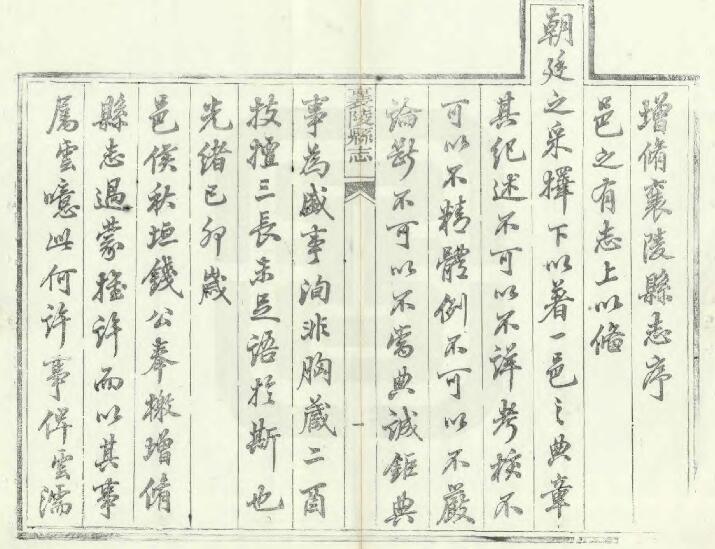 增脩襄陵縣志序
邑之有志上以俻
朝廷之采擇下以著一邑之典章
其紀述不可以不詳考核不
可以不精體例不可以不嚴
論斷不可以不當典誠鉅典
襄陵縣志
一
事為盛事洵非胸藏二酉
技擅三長未足語於斯也
光緒己卯歲
邑侯秋垣錢公奉檄增脩
縣志過蒙推許而以其事
属雲噫此何許事俾雲濡